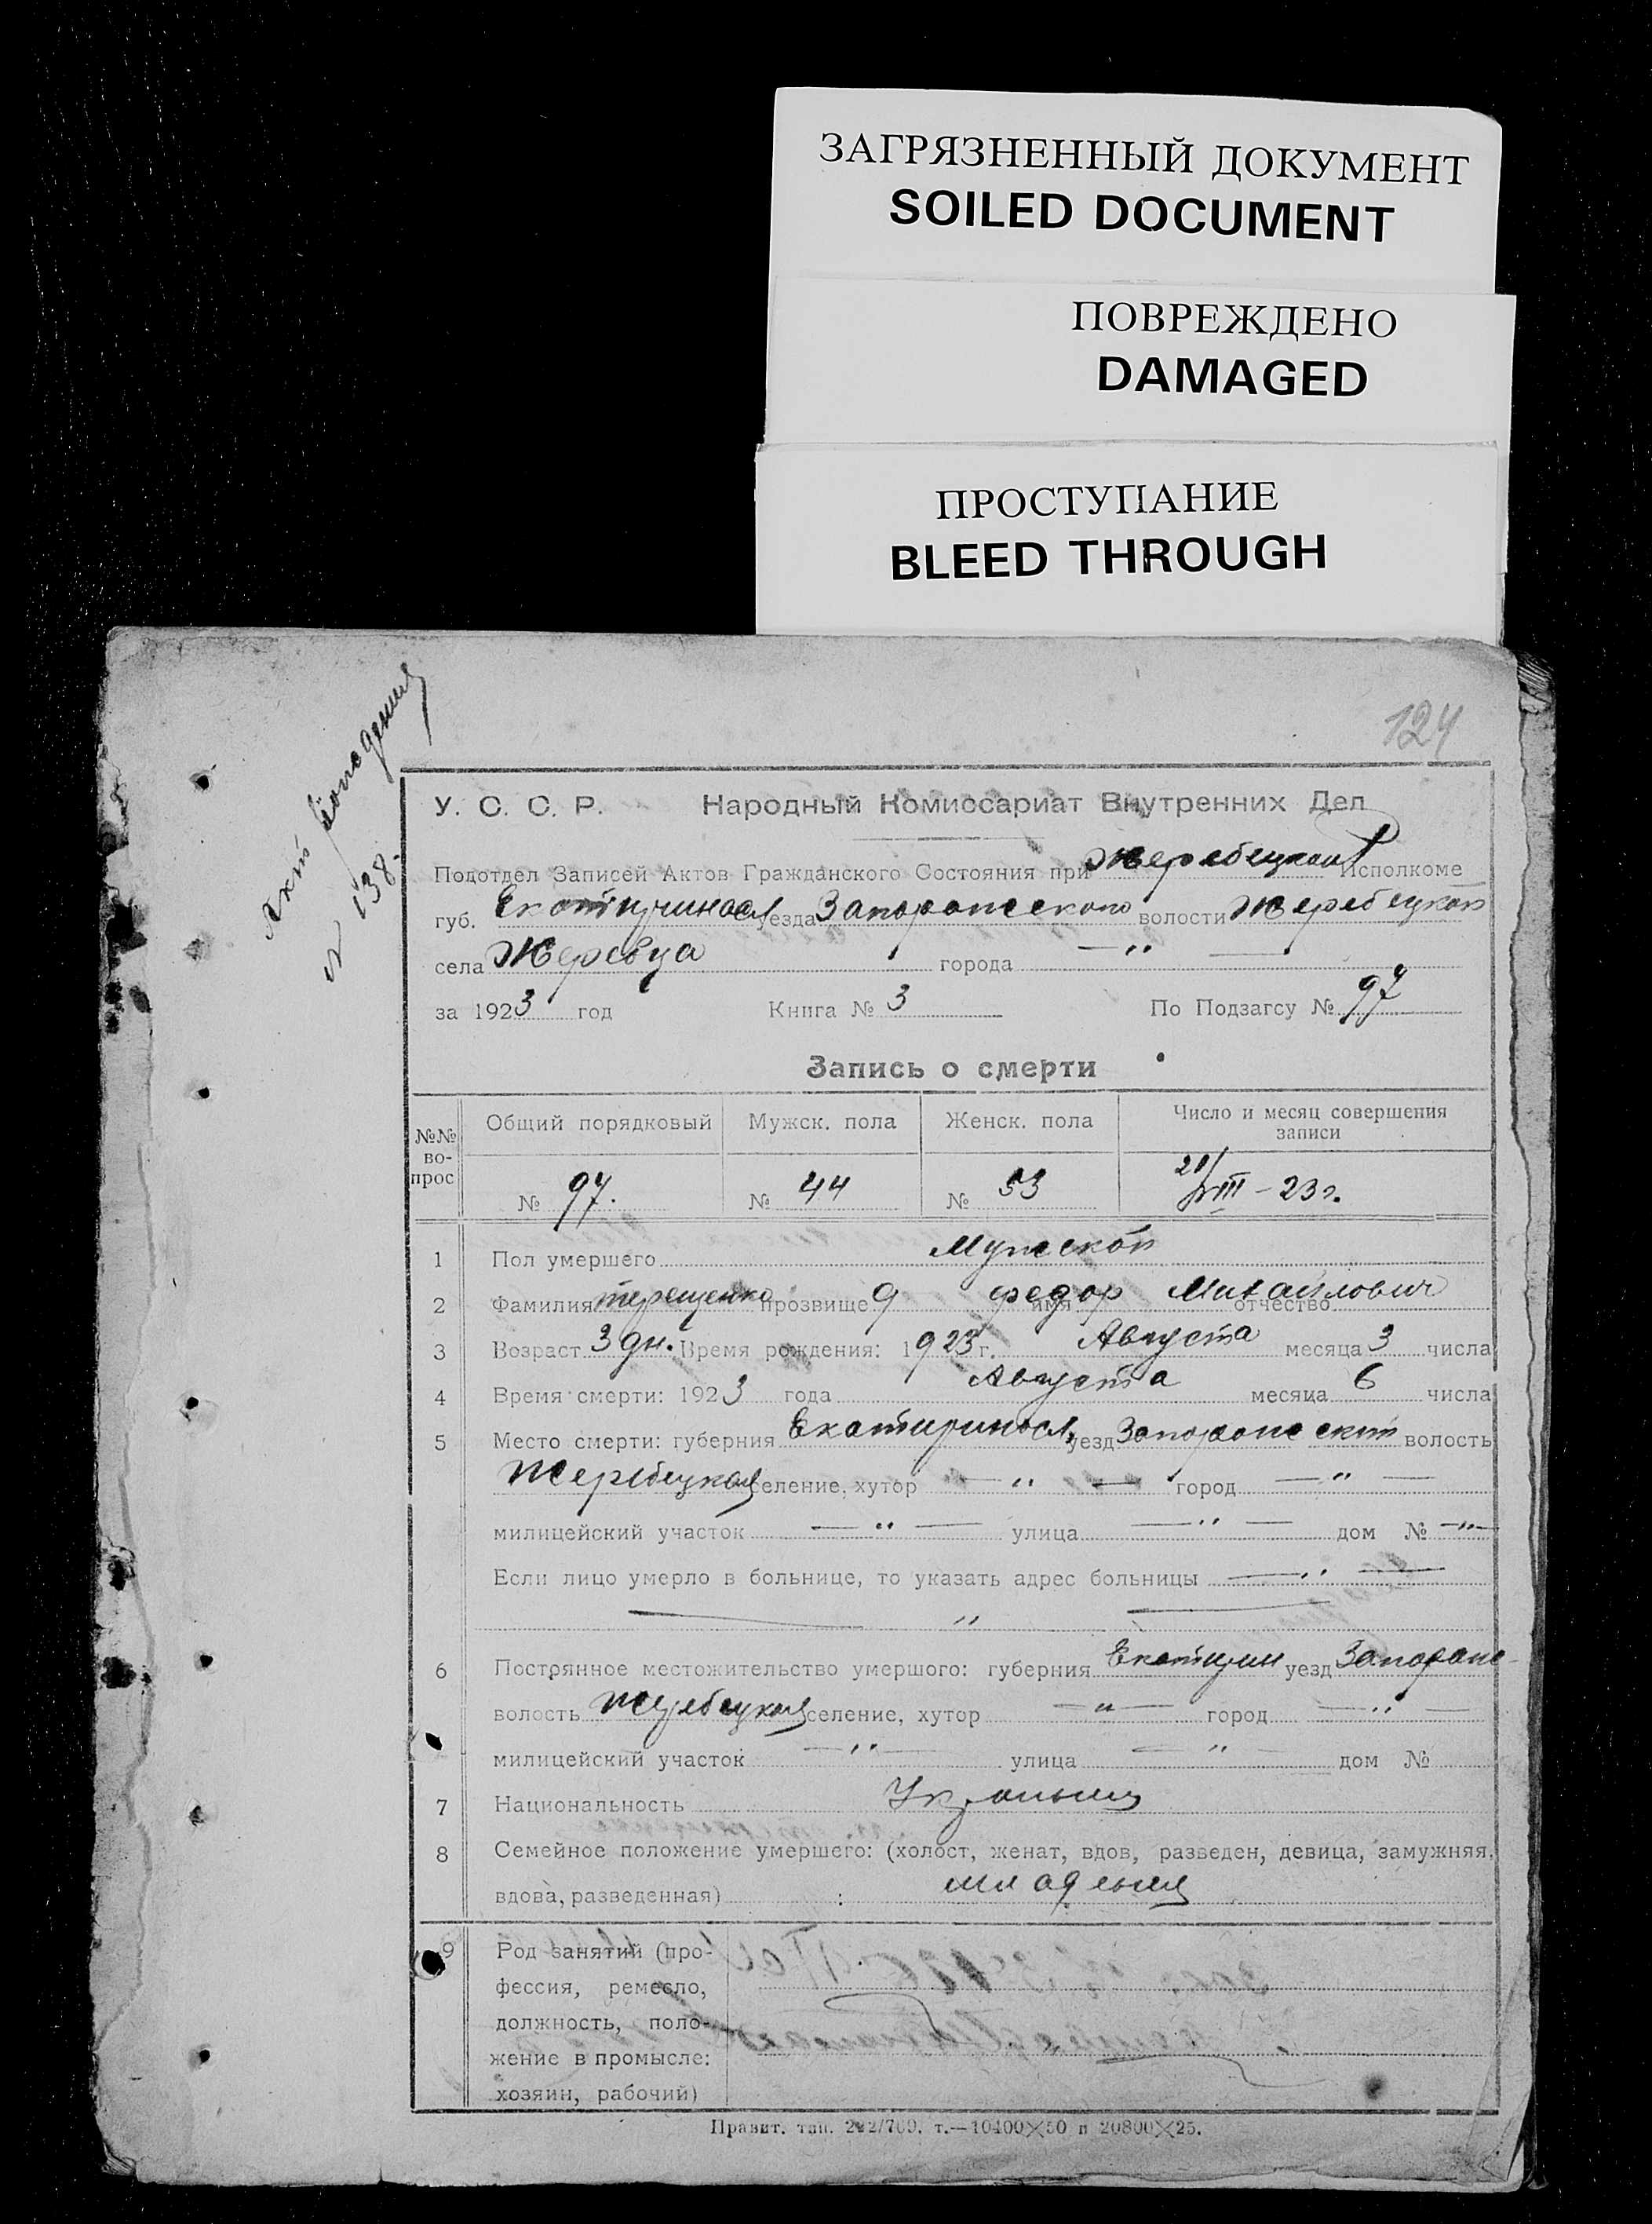 ЗАГРЯЗНЕННЫЙ ДОКУМЕНТ
SOILED DOCUMENT
ПОВРЕЖДЕНО
DAMAGED
ПРОСТУПАНИЕ
BLEED THROUGH
124
Акт
№ 138.
У. С. С. Р. Народный Комиссариат Внутренних Дел
Подотдел Записей Актов Гражданского Состояния при Жеребецком Исполкоме
губ. Екатиринасл уезда Запорожского волости Жеребецкой
села Жеребца города — „ —
за 1923 год Книга № 3 По Подзагсу № 97
Запись о смерти
№№ вопрос Общий порядковый Мужск. пола Женск. пола Число и месяц совершения записи
№ 97. № 44 № 53 VIII – 23 г.
1 Пол умершего Мужской
2 Фамилия терещенко прозвище федор имя Михайлович отчество
3 Возраст 3 дн. Время рождения: 1923 г. Августа месяца 3 числа
4 Время смерти: 1923 года Августа месяца 6 числа
5 Место смерти: губерния Екатиринасл, уезд Запорожский волость
Жеребецкая селение, хутор — „ — город — „ —
милицейский участок — „ — улица — „ — дом № — „ —
Если лицо умерло в больнице, то указать адрес больницы — „ —
— „ —
6 Постоянное местожительство умершого: губерния Екатирин уезд Запорож-
волость Жеребецкая селение, хутор — „ — город — „ —
милицейский участок — „ — улица — „ — дом №
7 Национальность Украинец
8 Семейное положение умершего: (холост, женат, вдов, разведен, девица, замужняя,
вдова, разведенная) младенец
9 Род занятий (про-
фессия, ремесло,
должность, поло-
жение в промысле:
хозяин, рабочий)
Правит. тип. т.—10400×50 и 20800×25.